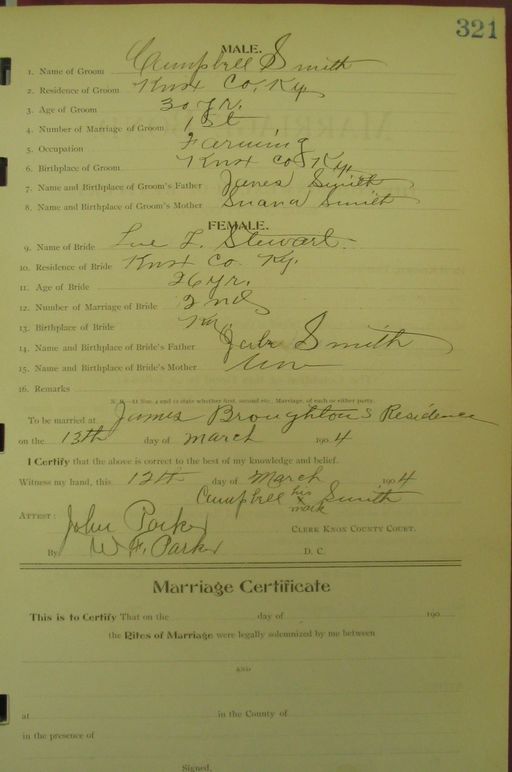 321
MALE.
1. Name of Groom Campbell Smith
2. Residence of Groom Knox Co, Ky
3. Age of Groom 30 yr.
4. Number of Marriage of Groom 1st
5. Occupation Farming
6. Birthplace of Groom Knox Co Ky.
7. Name and Birthplace of Groom's Father James Smith
8. Name and Birthplace of Groom's Mother Smith
FEMALE.
9. Name of Bride Stewart
10. Residence of Bride Knox Co. Ky.
11. Age of Bride 26 yr.
12. Number of Marriage of Bride 2nd
13. Birthplace of Bride Ky.
14. Name and Birthplace of Bride's Father Smith
15. Name and Birthplace of Bride's Mother
16. Remarks
N. B.—At Nos. 4 and 12 state whether first, second etc., Marriage, of each or either party.
To be married at James Broughton's Residence
on the 13th day of March 1904
I Certify that the above is correct to the best of my knowledge and belief.
Witness my hand, this 12th day of March 1904
Campbell his x mark Smith
ATTEST: John Parker CLERK KNOX COUNTY COURT.
By W F. Parker D. C.
Marriage Certificate
This is to Certify That on the day of 190
the Rites of Marriage were legally solemnized by me between
AND
at in the County of
in the presence of
Signed,